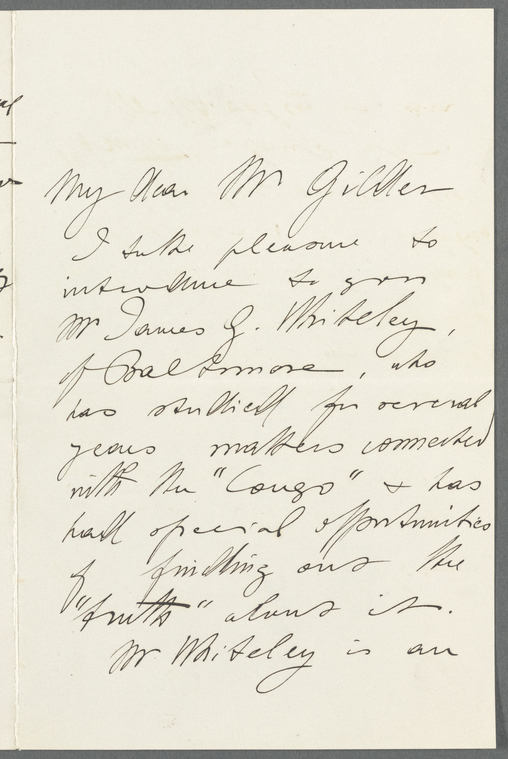 My dear Mr Gilder
I take pleasure to
introduce to you
Mr James G. Whiteley,
of Baltimore, who
has studied for several
years matters connected
with the "Congo" & has
had special opportunities
of finding out the
"truth" about it.
Mr Whiteley is an